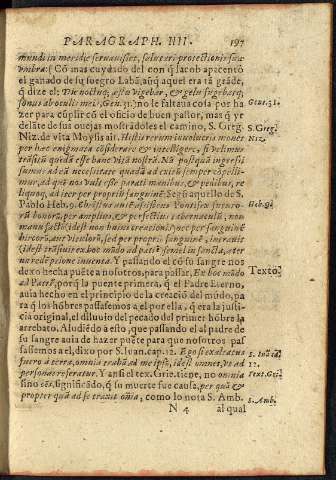 PARAGRAPH. IIII. 197
mundi in meridie servavisset, soluteri protectionis suæ
umbra: Cō mas cuydado del con q̄ Iacob apacentó
el ganado de su suegro Labā, aūq̄ aquel era tā grāde,
q̄ dize el: Die noctuq; æstu urgebar, & gelu fugiebatq;
somnus ab oculis meis, Gen. 31. no le faltava cosa por ha Gene. 31.
zer para cūplir cō el oficio de buen pastor, mas q̄ yr
delāte de sus ovejas mostrādoles el camino, S. Greg. S. Greg.
Niz. de vita Moysis ait. Historierum involucris moner Niz.
per hæc enigmata cōsiderare & intelligere, si velimus
trāsitū quēdā esse hanc vitā nostrā. Nā postquā ingressi
sumus ad eā necessitate quadā ad exitū semper cōpelli-
mur, ad quē nos vult esse parati manibus, & pedibus, re
liquaq; ad iter per proprii sanguinē. Seria aquello de S.
Pablo Heb. 9. Christus autē assistens Pontifex futuro- Heb. 9.
rū bonorū, per amplius, & perfectius tabernaculū, non
manu factū (idest non huius creationis) neque per sanguinē
hircorū, aut vitulorū, sed per propriū sanguinē, introivit
(idest trāsiuit ex hoc mūdo ad patrē) semel in sancta, æter
na redēptione inventa. Y passando el cō su sangre nos
dexo hecha puēte a nosotros, para passar, Ex hoc mūdo Texto.
ad Patrē, porq̄ la puente primera, q̄ el Padre Eterno,
avia hecho en el principio de la creaciō del mūdo, pa
ra q̄ los hōbres passasemos a el por ella, q̄ era la justi-
cia original, el diluvio del pecado del primer hōbre la
arrebato. Aludiēdo à esto, que passando el al padre de
su sangre avia de hazer puēte para que nosotros pas
sassemos a el, dixo por S. Iuan. cap. 12. Ego si exaltatus S. Iuā ca.
fuero à terra, omnia trahā ad me ipsū, idest omnes, ut ad 12.
personas reseratur. Y ansi el tex. Grie. tiene, no omnia Text. Gri.
sino oēs, significādo, q̄ su muerte fue causa, per quā &
propter quā ad se traxit oīa, como lo nota S. Amb. S. Amb.
N 4 al qual